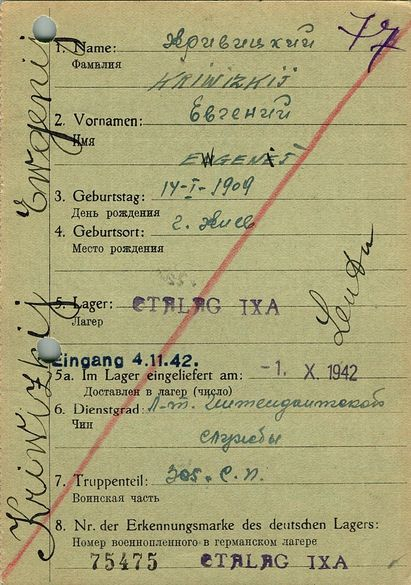 77
1. Name: Кривицкий
Фамилия
KRIWIZKIJ
2. Vornamen: Евгений
Имя
EWGENIJ
3. Geburtstag: 14-I-1909
День рождения
4. Geburtsort: г. Киев
Место рождения
5. Lager: STALAG IXA
Лагерь
Eingang 4.11.42.
5a. Im Lager eingeliefert am: -1. X. 1942
Доставлен в лагер (число)
6. Dienstgrad: Л-т. Интендантской
Чин
службы
7. Truppenteil: 305. С.П.
Воинская часть
8. Nr. der Erkennungsmarke des deutschen Lagers:
Номер военнопленного в германском лагере
75475 STALAG IXA
Kriwizkij Ewgenij